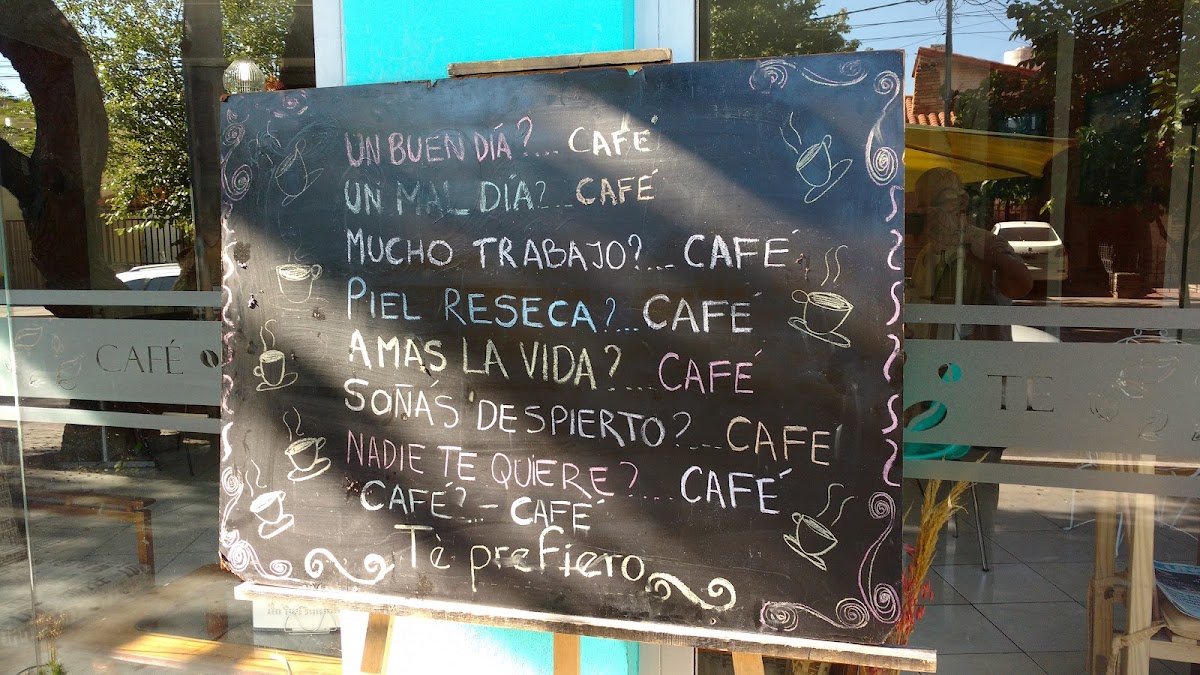 UN BUEN DIÁ?... CAFÉ
UN MAL DÍA?... CAFÉ
MUCHO TRABAJO?... CAFÉ
PIEL RESECA?... CAFÉ
AMAS LA VIDA?.... CAFÉ
SOÑÁS DESPIERTO?... CAFÉ
NADIE TE QUIERE?.... CAFÉ
CAFÉ?...- CAFÉ
Tè prefiero
CAFÉ
TE